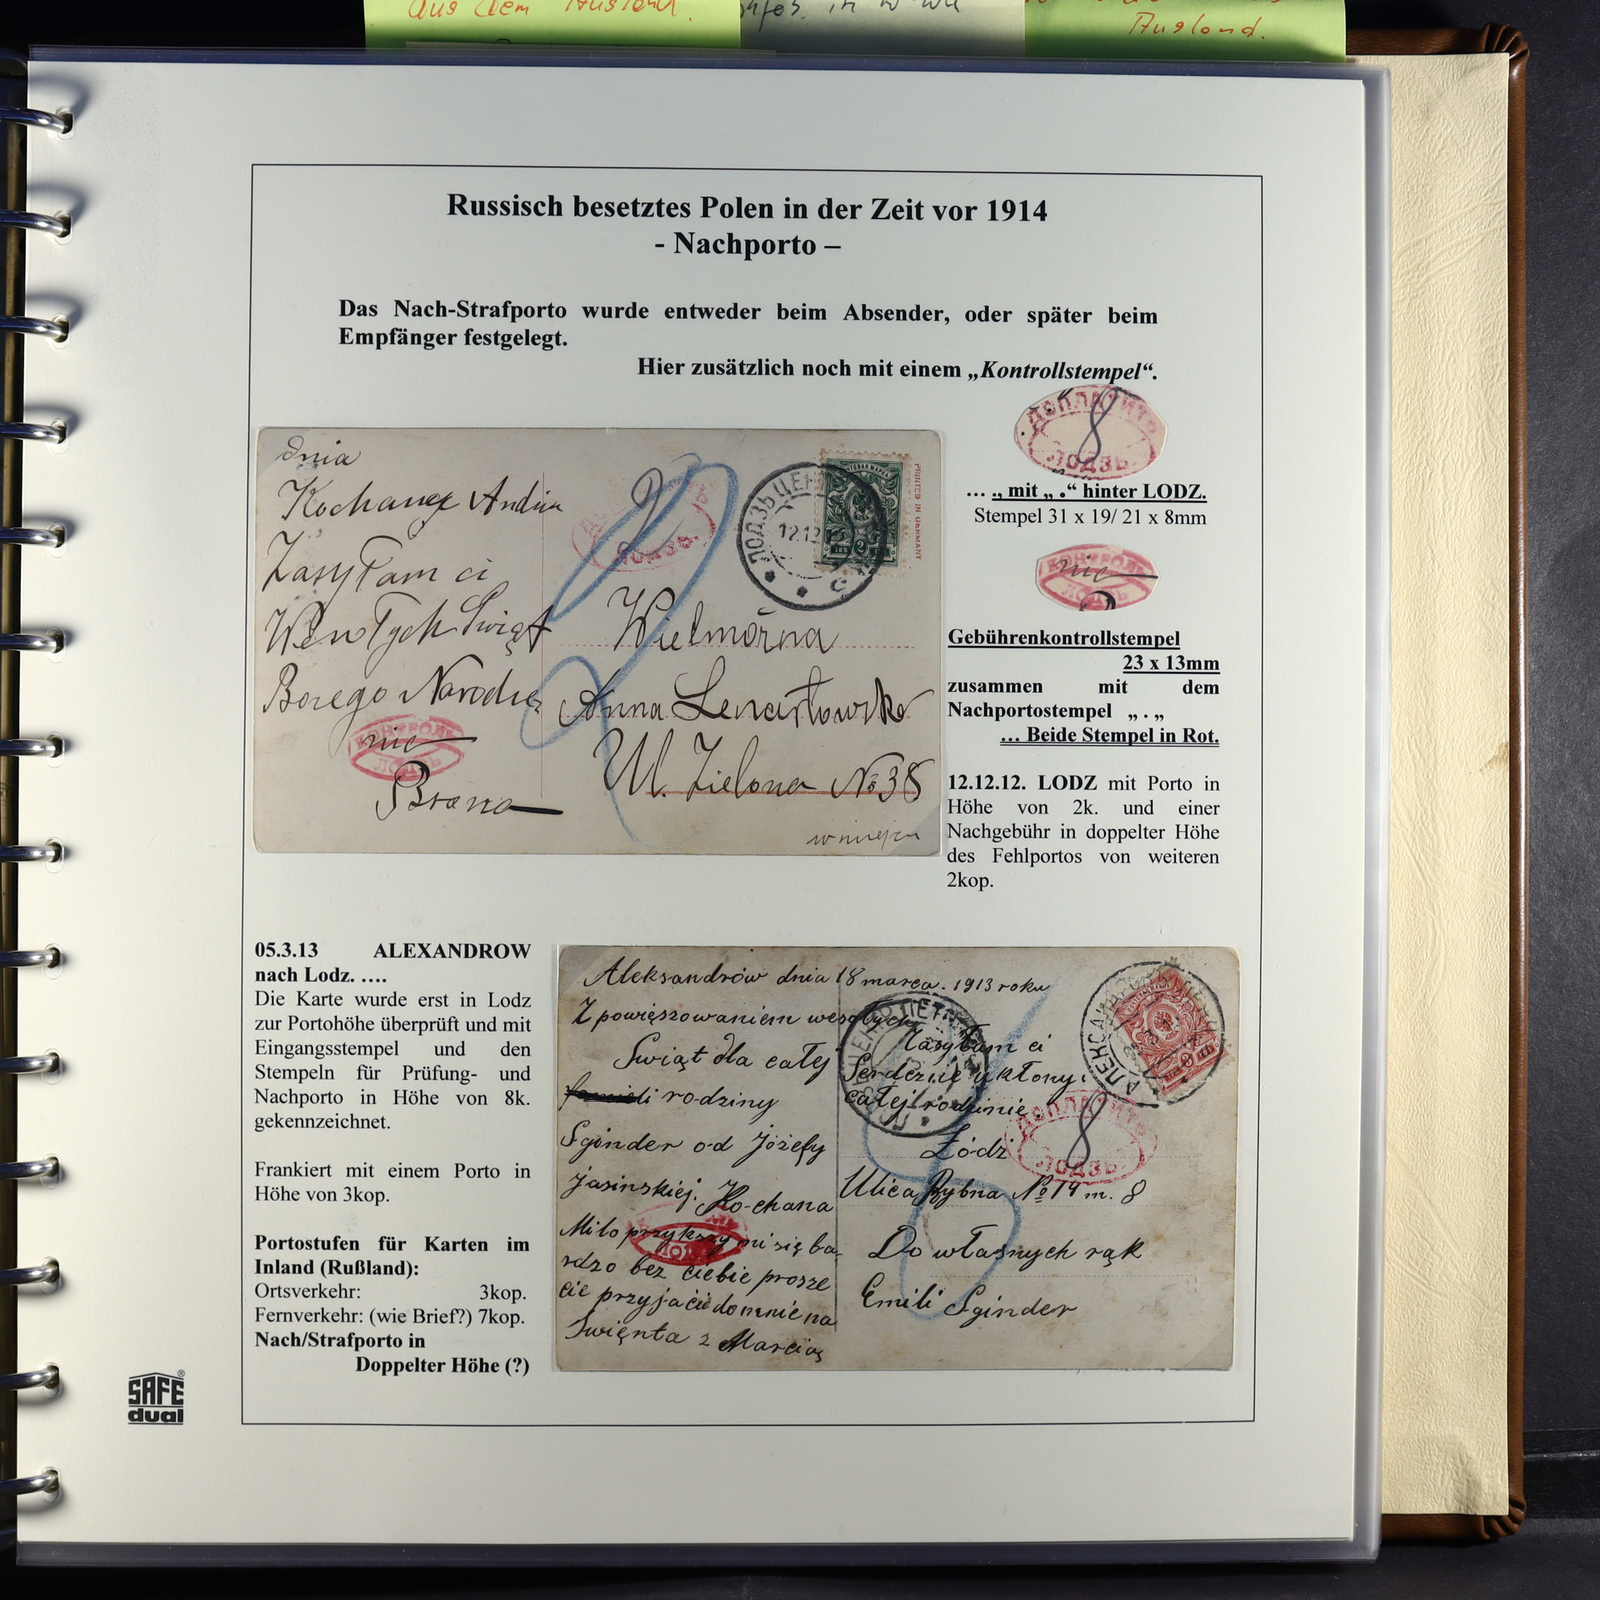 aus dem Ausland.
Ausland.
Russisch besetztes Polen in der Zeit vor 1914
- Nachporto –
Das Nach-Strafporto wurde entweder beim Absender, oder später beim
Empfänger festgelegt.
Hier zusätzlich noch mit einem „Kontrollstempel“.
ДОПЛАТИТЬ
8
ЛОДЗЬ.
… ., mit „ .“ hinter LODZ.
Stempel 31 x 19/ 21 x 8mm
КОНТРОЛЬ
nie
ЛОДЗЬ
Gebührenkontrollstempel
23 x 13mm
zusammen mit dem
Nachportostempel „ . „
… Beide Stempel in Rot.
12.12.12. LODZ mit Porto in
Höhe von 2k. und einer
Nachgebühr in doppelter Höhe
des Fehlportos von weiteren
2kop.
dnia
Kochanej
Zasyłam ci
Wen Tych Świąt
Borego
КОНТРОЛЬ
nie
ЛОДЗЬ
2
ЛОДЗЬ.
ЛОДЗЬ ЦЕН
12.12
С
2
PRINTED IN GERMANY
Wielmożna
Anna Lenartowska
Ul. Zielona No 38
05.3.13 ALEXANDROW
nach Lodz. ….
Die Karte wurde erst in Lodz
zur Portohöhe überprüft und mit
Eingangsstempel und den
Stempeln für Prüfung- und
Nachporto in Höhe von 8k.
gekennzeichnet.
Frankiert mit einem Porto in
Höhe von 3kop.
Portostufen für Karten im
Inland (Rußland):
Ortsverkehr: 3kop.
Fernverkehr: (wie Brief?) 7kop.
Nach/Strafporto in
Doppelter Höhe (?)
Aleksandrów dnia 18 marca. 1913 roku
Z powięszowaniem wesołych
Swiąt dla całej
rodziny
Sginder od Józefy
Jasinskiej. Ko-chana
Milo przykrzy mi się ba-
rdzo bez ciebie prosze
cie przyjacie do mnie na
Swięnta z
Zasyłam ci
Serdeznie ukłony
całej rodzinie.
Łódź
Ulica Rybna No 14 m. 8
Do własnych rąk
Emili Sginder
ДОПЛАТИТЬ
8
ЛОДЗЬ.
3
SAFE®
dual